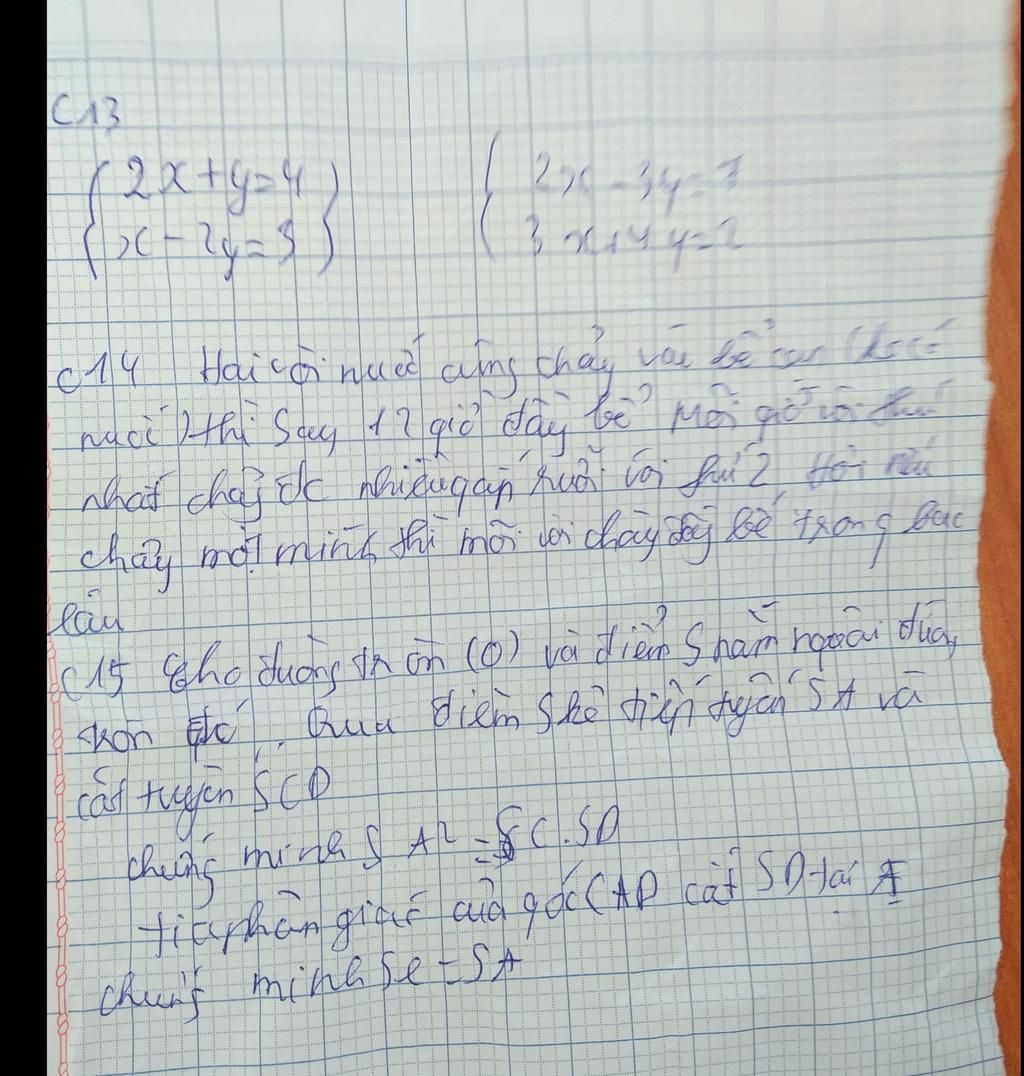 C13
{ 2x+y=4 } { 2x-3y=7
{ x-2y=3 } { 3x+4y=2
c14 Hai vòi nước cùng chảy vào bể
nước) thì Say 12 giờ đầy bể Mỗi giờ vòi
nhất chảy đc nhiều gấp rưỡi vòi thứ 2 Hỏi nếu
chảy một mình thì mỗi vòi chảy đầy bể trong bao
lâu
C15 Cho đường tròn (O) và điểm S nằm ngoài
Qua điểm S kẻ tiếp tuyến SA và
cát tuyến SCD
chứng minh SA2=SC.SD
tia phân giác của góc CAD cắt SD tại
chứng minh Se=SA